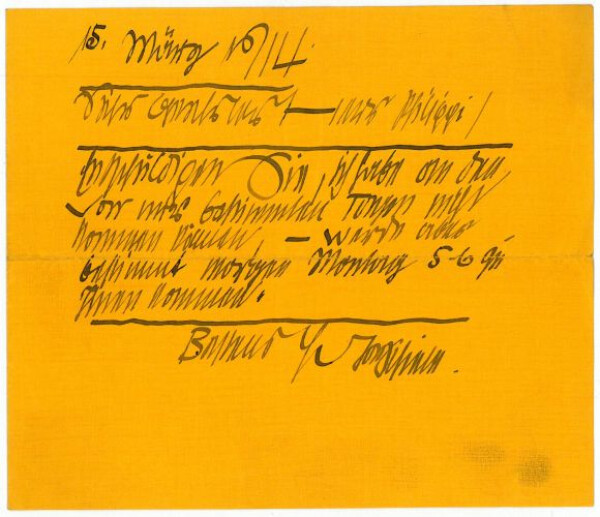 15. März 19/14.
Sehr geehrter — Herr Philippi!
Entschuldigen Sie, ich habe an den
von mir bestimmten Tagen nicht
kommen können — werde aber
bestimmt morgen Montag 5-6 zu
Ihnen kommen.
Bestens